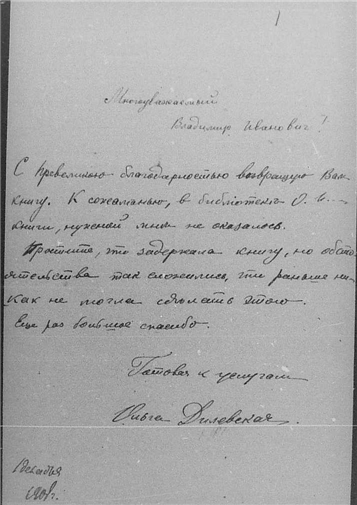 Многоуважаемый
Владимир Иванович!
С превеликою благодарностью возвращаю Вам
книгу. К сожаленью, в библіотекѣ О. И.
книги, нужной мнѣ не оказалось.
Простите, что задержала книгу, но обсто
ятельства так сложились, что раньше ни-
как не могла сдѣлать этого.
Еще раз большое спасибо.
Готовая к услугам
Ольга Дилевская.
декабря